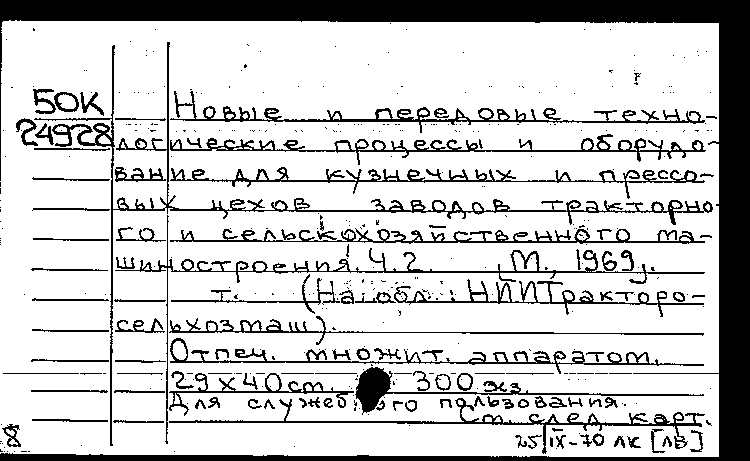 50К
24928
Новые и передовые техно-
логические процессы и оборудо-
вание для кузнечных и прессо-
вых цехов заводов тракторно-
го и сельскохозяйственного ма-
шиностроения. Ч. 2. М., 1969.
т. (На обл.: НИИТракторо-
сельхозмаш).
Отпеч. множит. аппаратом.
29х40 ст. 300 экз.
Для служебного пользования.
См. след. карт.
8
25/IX-70 ЛК [ЛВ]